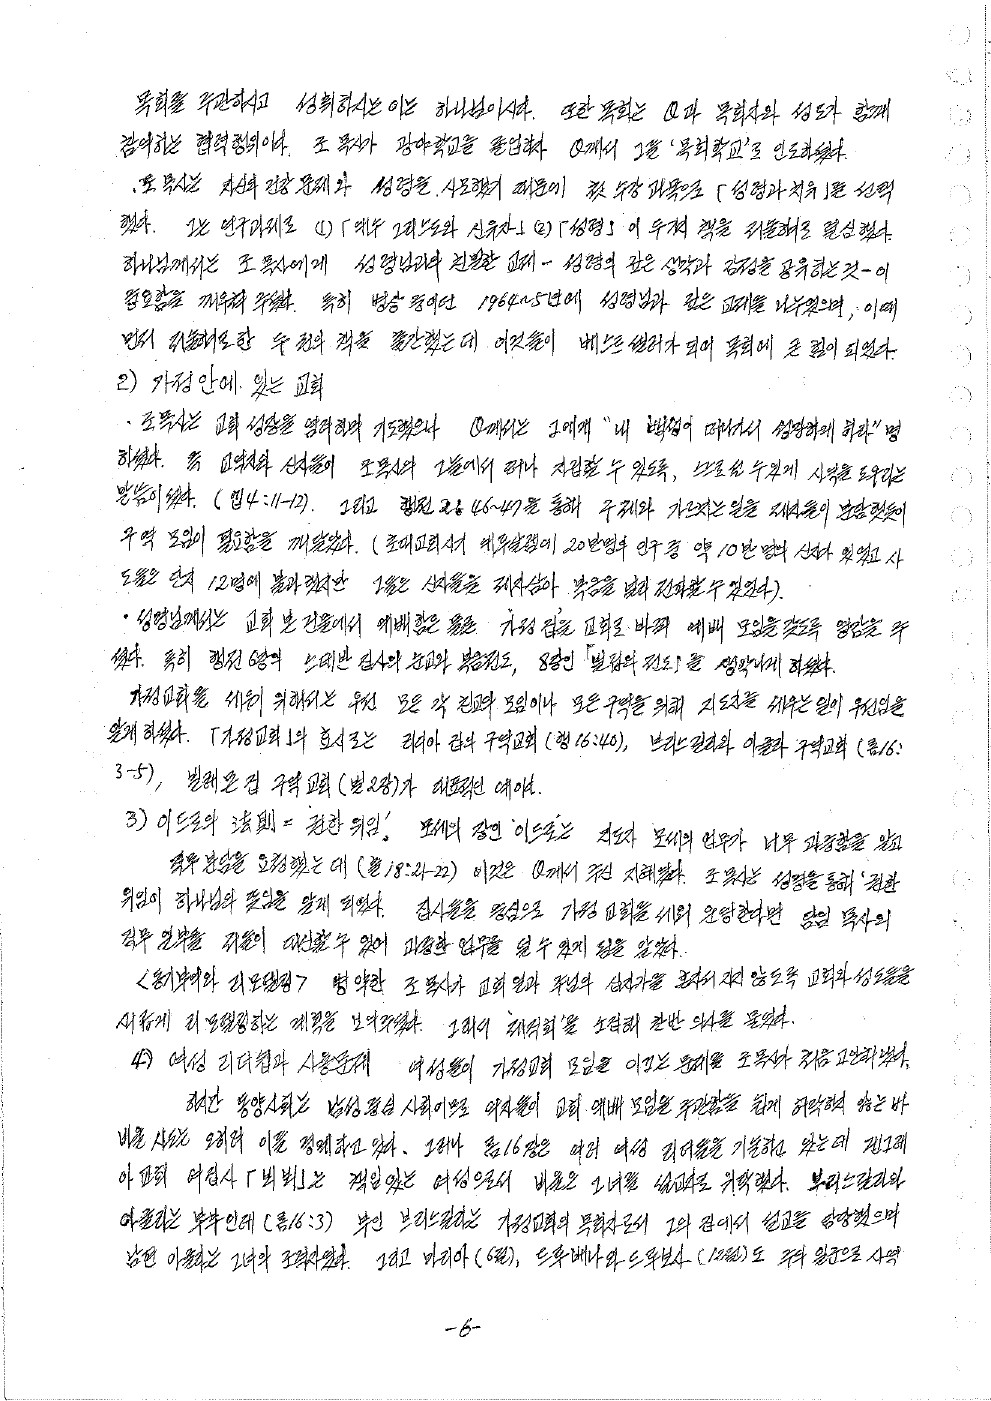 목회를 주관하시고 성취하시는 이는 하나님이시다. 또한 목회는 Q과 목회자와 성도가 함께
참여하는 협력행위이다. 조 목사가 광야학교를 졸업하자 Q께서 그를 '목회학교'로 인도하셨다.
조 목사는 자신의 건강 문제와 성령을 사모했기 때문에 첫 수강 과목으로 「성령과 치유」를 선택
했다. 그는 연구과제로 (1)「예수 그리스도와 신유자」(2)「성령」이 두 권의 책을 저술하려고 결심했다.
하나님께서는 조 목사에게 성령님과의 친밀한 교제 - 성령의 깊은 생각과 감정을 공유하는 것 - 이
중요함을 깨우쳐 주셨다. 특히 병상 중이던 1964~5년에 성령님과 깊은 교제를 나누었으며, 이때
먼저 저술하려 한 두 권의 책을 출간했는데 이것들이 베스트 셀러가 되어 목회에 큰 힘이 되었다.
2) 가정 안에 있는 교회
· 조 목사는 교회 성장을 염려하며 기도했으나 Q께서는 그에게 "내 백성이 떠나가서 성장하게 하라" 명
하셨다. 즉 교역자와 신자들이 조 목사의 그늘에서 떠나 자립할 수 있도록, 스스로 설 수 있게 사역을 도우라는
말씀이었다. (엡4:11-12). 그리고 행전 2장 46~47을 통해 구제와 가르치는 일을 제자들이 분담했듯이
구역 모임이 필요함을 깨달았다. (초대교회시기 예루살렘에 20만명의 인구 중 약 10만 명의 신자가 있었고 사
도들은 단지 12명에 불과했지만 그들은 신자들을 제자삼아 복음을 널리 전파할 수 있었다).
· 성령님께서는 교회 본 건물에서 예배함은 물론 가정 집을 교회로 바꿔 예배 모임을 갖도록 영감을 주
셨다. 특히 행전 6장의 스데반 집사의 순교와 복음전도, 8장인 「빌립의 전도」를 생각나게 하셨다.
가정교회를 세우기 위해서는 우선 모든 각 선교의 모임이나 모든 구역을 위해 지도자를 세우는 일이 우선임을
알게 하셨다. 「가정교회」의 효시로는 루디아 집의 구역교회 (행16:40), 브리스길라와 아굴라 구역교회 (롬16:
3-5), 빌레몬 집 구역교회 (빌2장)가 대표적인 예이다.
3) 이드로의 法則 = 권한 위임! 모세의 장인 '이드로'는 지도자 모세의 업무가 너무 과중함을 알고
직무 분담을 요청했는데 (출18:21-22) 이것은 Q께서 주신 지혜였다. 조 목사는 성령을 통해 '권한
위임이 하나님의 뜻임을 알게 되었다. 집사들을 중심으로 가정 교회를 세워 운영한다면 담임 목사의
직무 일부를 저들이 대신할 수 있어 과중한 업무를 덜 수 있게 됨을 알았다.
<동기부여와 리모델링> 병약한 조 목사가 교회 일과 주님의 십자가를 혼자서 지지 않도록 교회와 성도들을
새롭게 리모델링하는 계획을 보여주셨다. 그리서 '제직회'를 소집해 찬반 의사를 물었다.
4) 여성 리더쉽과 사용문제 여성들이 가정교회 모임을 이끄는 문제를 조 목사가 처음 고안해냈다.
하지만 동양사회는 남성중심 사회이므로 여자들이 교회 예배 모임을 주관함을 쉽게 허락하지 않는 바
바울 사도는 오히려 이를 경계하고 있다. 그러나 롬16장은 여러 여성 리더들을 기술하고 있는데 겐그레
아 교회 여집사 「뵈뵈」는 책임있는 여성으로서 바울은 그녀를 설교자로 위탁했다. 브리스길라와
아굴라는 부부인데 (롬16:3) 부인 브리스길라는 가정교회의 목회자로서 그의 집에서 설교를 담당했으며
남편 아굴라는 그녀의 조력자였다. 그리고 마리아 (6절), 드루베나와 드루보사 (12절)도 주의 일군으로 사역
-6-